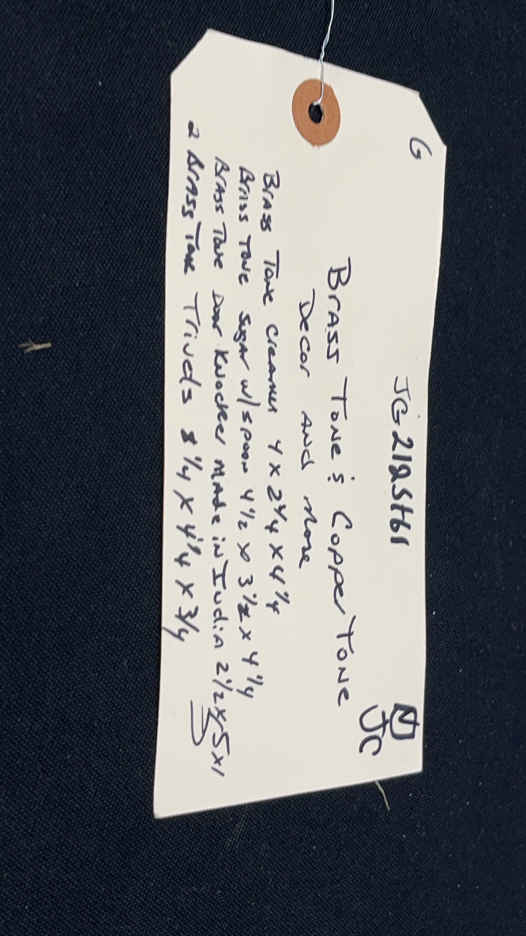 G
JG212SH61
JC
Brass Tone & Copper Tone
Decor and more
Brass Tone creamer 4 x 2 1/4 x 4 1/4
Brass Tone Sugar w/spoon 4 1/2 x 3 1/2 x 4 1/4
Brass Tone Door Knocker Made in India 2 1/2 x 5 x 1
2 Brass Tone Trivets 8 1/4 x 4 1/4 x 3/4